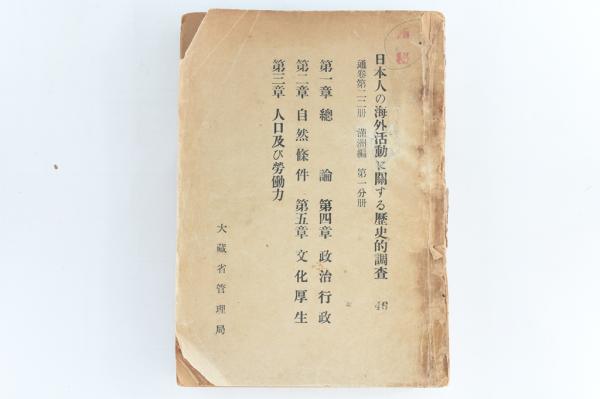 日本人の海外活動に關する歷史的調査 46
通卷第二二册 滿洲編 第一分册
第一章 總論 第四章 政治行政
第二章 自然條件 第五章 文化厚生
第三章 人口及び勞働力
大藏省管理局